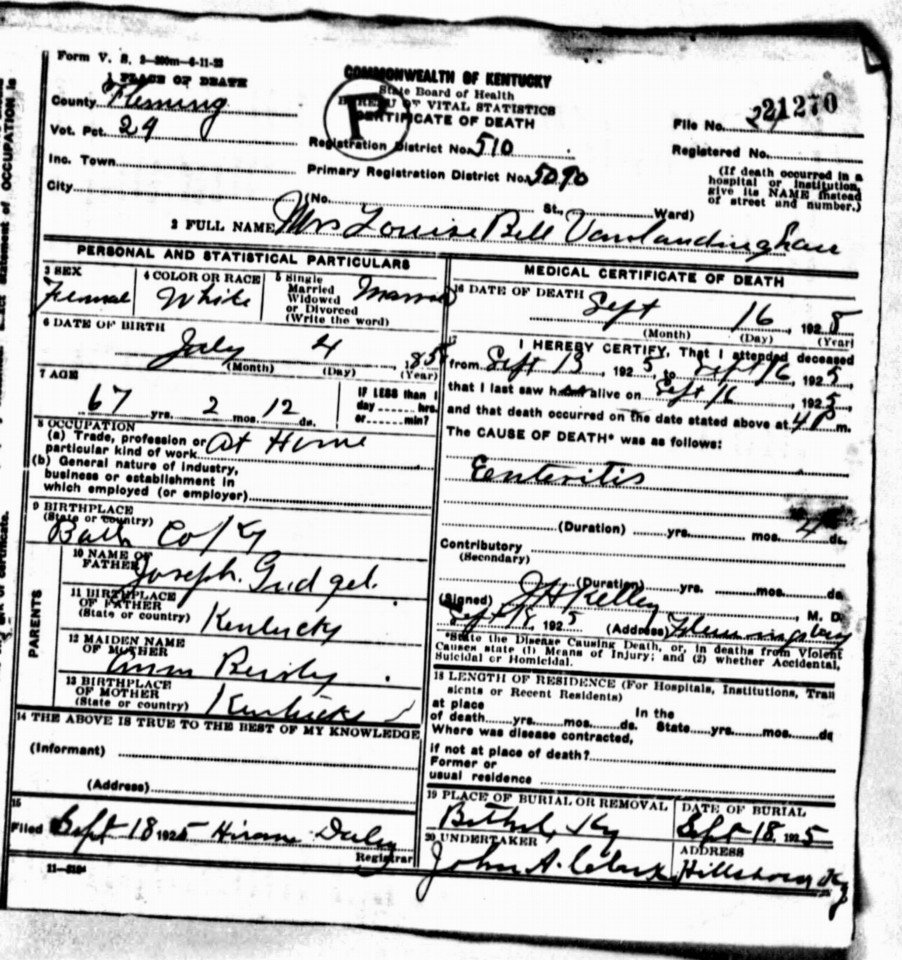 Form V. S. 3—300m—6-11-23
1 PLACE OF DEATH
COMMONWEALTH OF KENTUCKY
State Board of Health
BUREAU OF VITAL STATISTICS
CERTIFICATE OF DEATH
County Fleming
Vot. Pct. 24
Inc. Town
City
Registration District No. 510
Primary Registration District No. 5090
File No. 21270
Registered No.
(If death occurred in a
hospital or institution,
give its NAME instead
of street and number.)
(No. St., Ward)
2 FULL NAME Mrs Louise Bell Vanlandingham
PERSONAL AND STATISTICAL PARTICULARS
3 SEX
Femal
4 COLOR OR RACE
White
5 Single
Married
Widowed
or Divorced
(Write the word)
Married
6 DATE OF BIRTH
July 4 185
(Month) (Day) (Year)
7 AGE
67 yrs. 2 mos. 12 ds.
IF LESS than 1
day hrs.
or min?
8 OCCUPATION
(a) Trade, profession or
particular kind of work At Home
(b) General nature of industry,
business or establishment in
which employed (or employer)
9 BIRTHPLACE
(State or country)
Bath Co Ky
PARENTS
10 NAME OF
FATHER Joseph Gudgel
11 BIRTHPLACE
OF FATHER
(State or country) Kentucky
12 MAIDEN NAME
OF MOTHER
13 BIRTHPLACE
OF MOTHER
(State or country) Kentucky
14 THE ABOVE IS TRUE TO THE BEST OF MY KNOWLEDGE
(Informant)
(Address)
15
Filed Sept 18 1925 Hiram
Registrar
MEDICAL CERTIFICATE OF DEATH
16 DATE OF DEATH
Sept 16, 192
(Month) (Day) (Year)
17
I HEREBY CERTIFY, That I attended deceased
from Sept 13, 1925, to Sept 16, 1925,
that I last saw h alive on Sept 16, 1925,
and that death occurred on the date stated above at 4 P m.
The CAUSE OF DEATH* was as follows:
Enteritis
(Duration) yrs. mos. 4 ds.
Contributory
(Secondary)
(Duration) yrs. mos. ds.
(Signed) J H Kelley, M. D.
Sept 18, 1925 (Address) Flemingsburg
*State the Disease Causing Death, or, in deaths from Violent
Causes state (1) Means of Injury; and (2) whether Accidental,
Suicidal or Homicidal.
18 LENGTH OF RESIDENCE (For Hospitals, Institutions, Tran
sients or Recent Residents)
at place In the
of death yrs. mos. ds. State yrs. mos. ds
Where was disease contracted,
if not at place of death?
Former or
usual residence
19 PLACE OF BURIAL OR REMOVAL
Bethel, Ky
DATE OF BURIAL
Sept 18, 1925
20 UNDERTAKER
John A.
ADDRESS
Hillsboro Ky